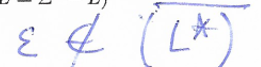 ε ⊄ (L*)